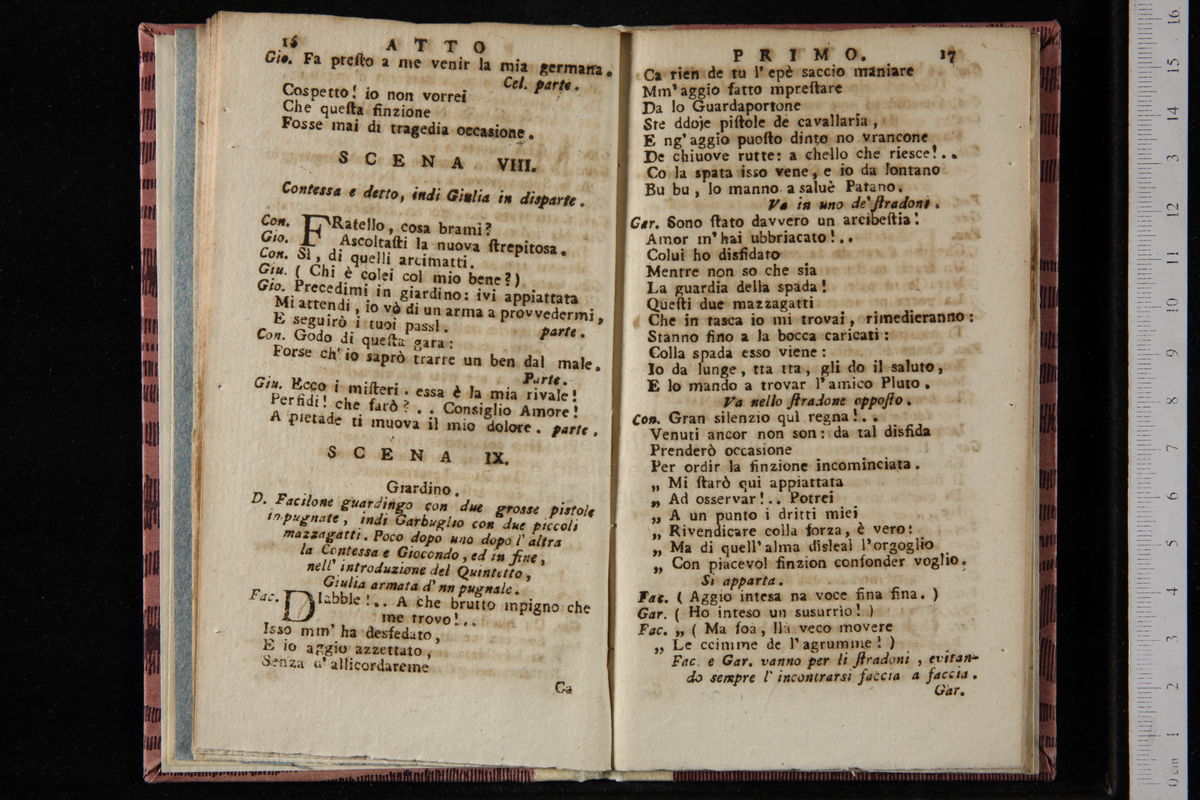 16 ATTO
Gio. Fa preſto a me venir la mia germana.
Cel. parte.
Coſpetto! io non vorrei
Che queſta finzione
Foſſe mai di tragedia occaſione.
SCENA VIII.
Conteſſa e detto, indi Giulia in diſparte.
Con. FRatello, coſa brami?
Gio. Aſcoltaſti la nuova ſtrepitoſa.
Con. Sì, di quelli arcimatti.
Giu. ( Chi è colei col mio bene? )
Gio. Precedimi in giardino: ivi appiattata
Mi attendi, io vò di un arma a provvedermi,
E ſeguirò i tuoi paſſi. parte.
Con. Godo di queſta gara:
Forſe ch' io ſaprò trarre un ben dal male.
Parte.
Giu. Ecco i miſteri. eſſa è la mia rivale!
Perfidi! che farò? .. Conſiglio Amore!
A pietade ti muova il mio dolore. parte.
SCENA IX.
Giardino.
D. Facilone guardingo con due groſſe piſtole
inpugnate, indi Garbuglio con due piccoli
mazzagatti. Poco dopo uno dopo l' altra
la Conteſſa e Giocondo, ed in fine,
nell' introduzione del Quintetto,
Giulia armata d' un pugnale.
Fac. DIabble!.. A che brutto mpigno che
me trovo!..
Iſſo mm' ha desfedato,
E io aggio azzettato,
Senza n' allicordareme
Ca
PRIMO. 17
Ca rien de tu l' epè ſaccio maniare
Mm' aggio fatto mpreſtare
Da lo Guardaportone
Ste ddoje piſtole de cavallaria,
E ng' aggio puoſto dinto no vrancone
De chiuove rutte: a chello che rieſce!..
Co la ſpata iſſo vene, e io da lontano
Bu bu, lo manno a ſaluè Patano.
Va in uno de' ſtradoni.
Gar. Sono ſtato davvero un arcibeſtia!
Amor m' hai ubbriacato!..
Colui ho disfidato
Mentre non so che ſia
La guardia della ſpada!
Queſti due mazzagatti
Che in taſca io mi trovai, rimedieranno:
Stanno fino a la bocca caricati:
Colla ſpada eſſo viene:
Io da lunge, tra tra, gli do il ſaluto,
E lo mando a trovar l' amico Pluto.
Va nello ſtradone oppoſto.
Con. Gran ſilenzio quì regna!..
Venuti ancor non son: da tal disfida
Prenderò occaſione
Per ordir la finzione incominciata.
„ Mi ſtarò qui appiattata
„ Ad oſſervar!.. Potrei
„ A un punto i dritti miei
„ Rivendicare colla forza, è vero:
„ Ma di quell' alma disleal l'orgoglio
„ Con piacevol finzion confonder voglio.
Si apparta.
Fac. ( Aggio inteſa na voce fina fina. )
Gar. ( Ho inteſo un ſusurrìo! )
Fac. „ ( Ma foa, llà veco movere
„ Le ccimme de l' agrumme! )
Fac. e Gar. vanno per li ſtradoni, evitan-
do ſempre l' incontrarſi faccia a faccia.
Gar.
0 cm 1 2 3 4 5 6 7 8 9 10 11 12 13 14 15 16